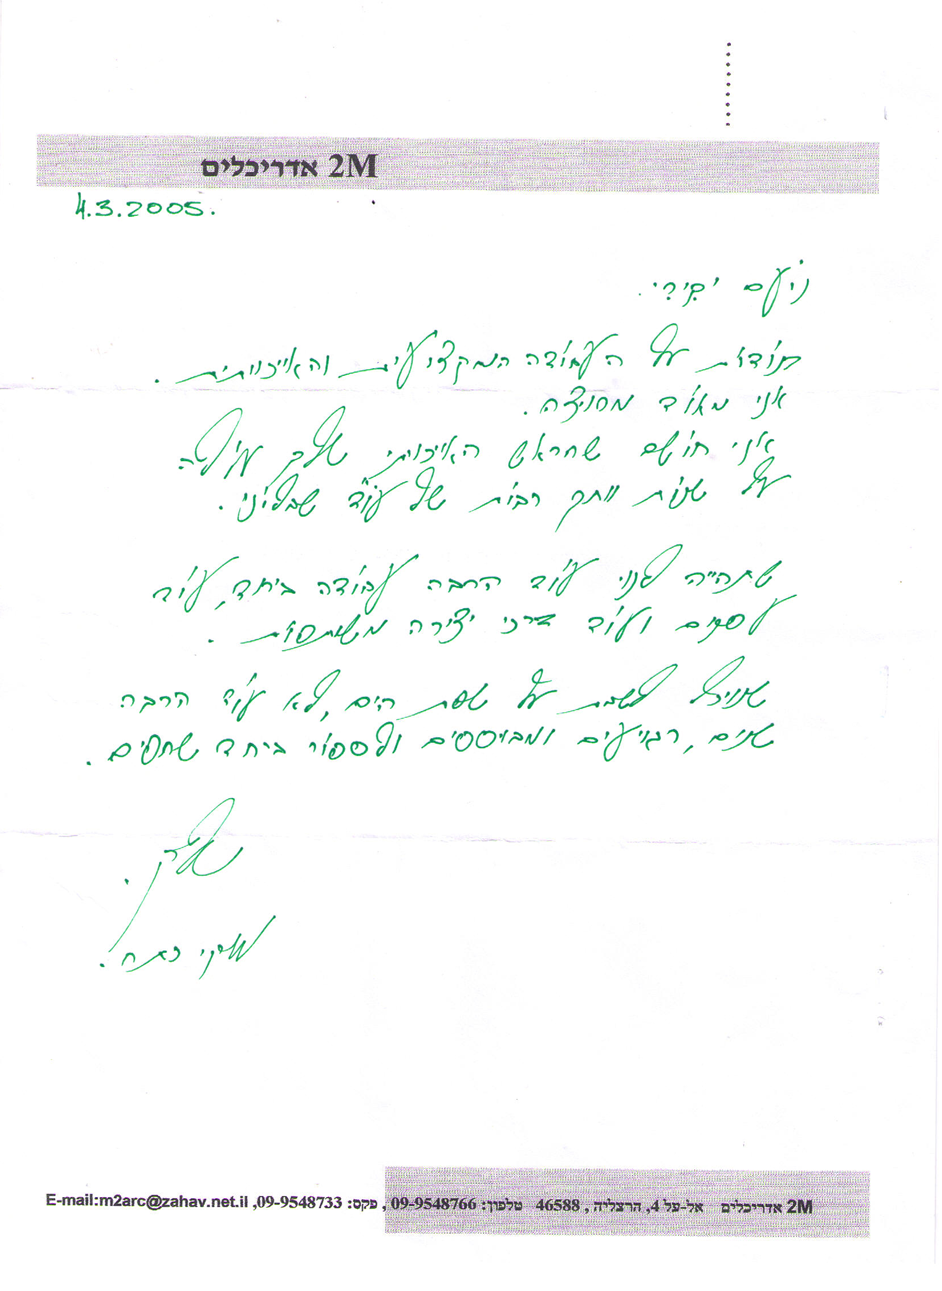 2M אדריכלים
4.3.2005.
נועם יקירי.
תודות על העבודה המקצועית והאיכותית.
אני מאוד מרוצה.
אני חושב שהראש האיכותי שלך עולה
על שנות ותק רבות של עוד
שתהיה לנו עוד הרבה עבודה ביחד, עוד
עסקים ועוד דרכי יצירה משותפות.
שנוכל לשבת על שפת הים, לא עוד הרבה
שנים, רגועים ומבוססים ולספור ביחד שחפים.
שלך.
2M אדריכלים אל-על 4, הרצליה, 46588 טלפון: 09-9548766, פקס: 09-9548733, E-mail:m2arc@zahav.net.il